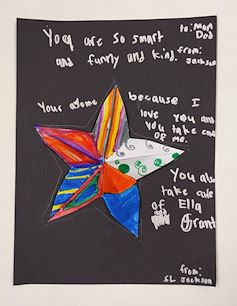 You are so smart
and funny and kind.
to: Mom
Dad
from:
Jackson
Your Some because I
love you and
you take care
of me.
You also
take cule
of Ella
Grant
from:
SL Jackson